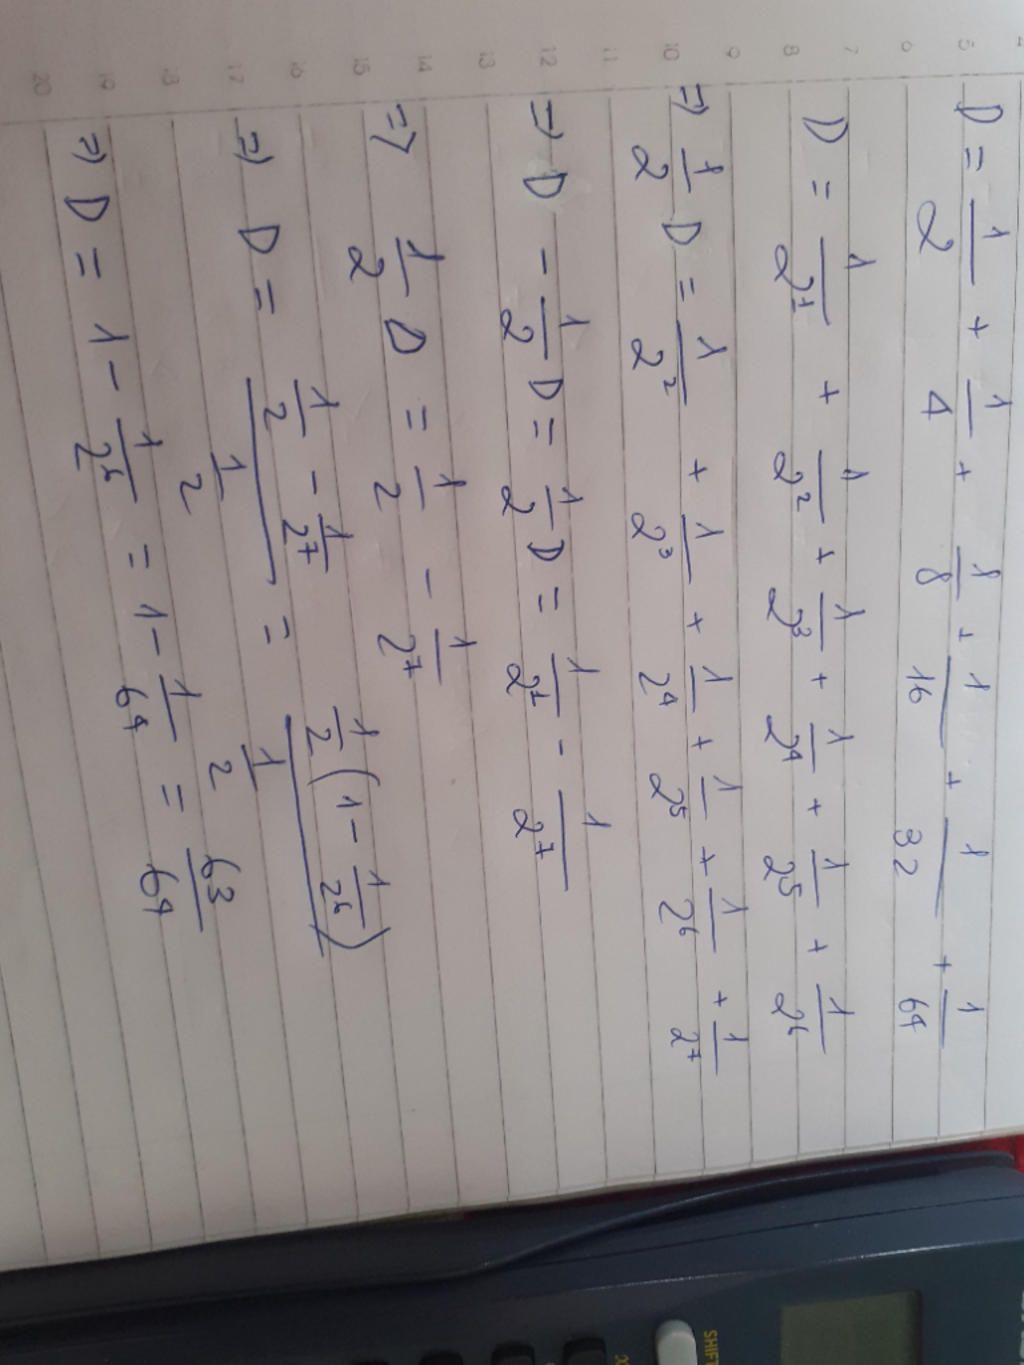 D = 1/2 + 1/4 + 1/8 + 1/16 + 1/32 + 1/64
D = 1/2¹ + 1/2² + 1/2³ + 1/2⁴ + 1/2⁵ + 1/2⁶
=> 1/2 D = 1/2² + 1/2³ + 1/2⁴ + 1/2⁵ + 1/2⁶ + 1/2⁷
=> D - 1/2 D = 1/2 D = 1/2¹ - 1/2⁷
=> 1/2 D = 1/2 - 1/2⁷
=> D = (1/2 - 1/2⁷)/(1/2) = (1/2(1 - 1/2⁶))/(1/2)
=> D = 1 - 1/2⁶ = 1 - 1/64 = 63/64
5
6
7
8
9
10
11
12
13
14
15
16
17
18
19
20
SHIFT